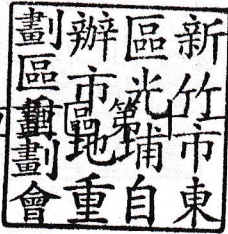 新竹市東
區光埔自
辦市地重
劃區重劃會
第十
區